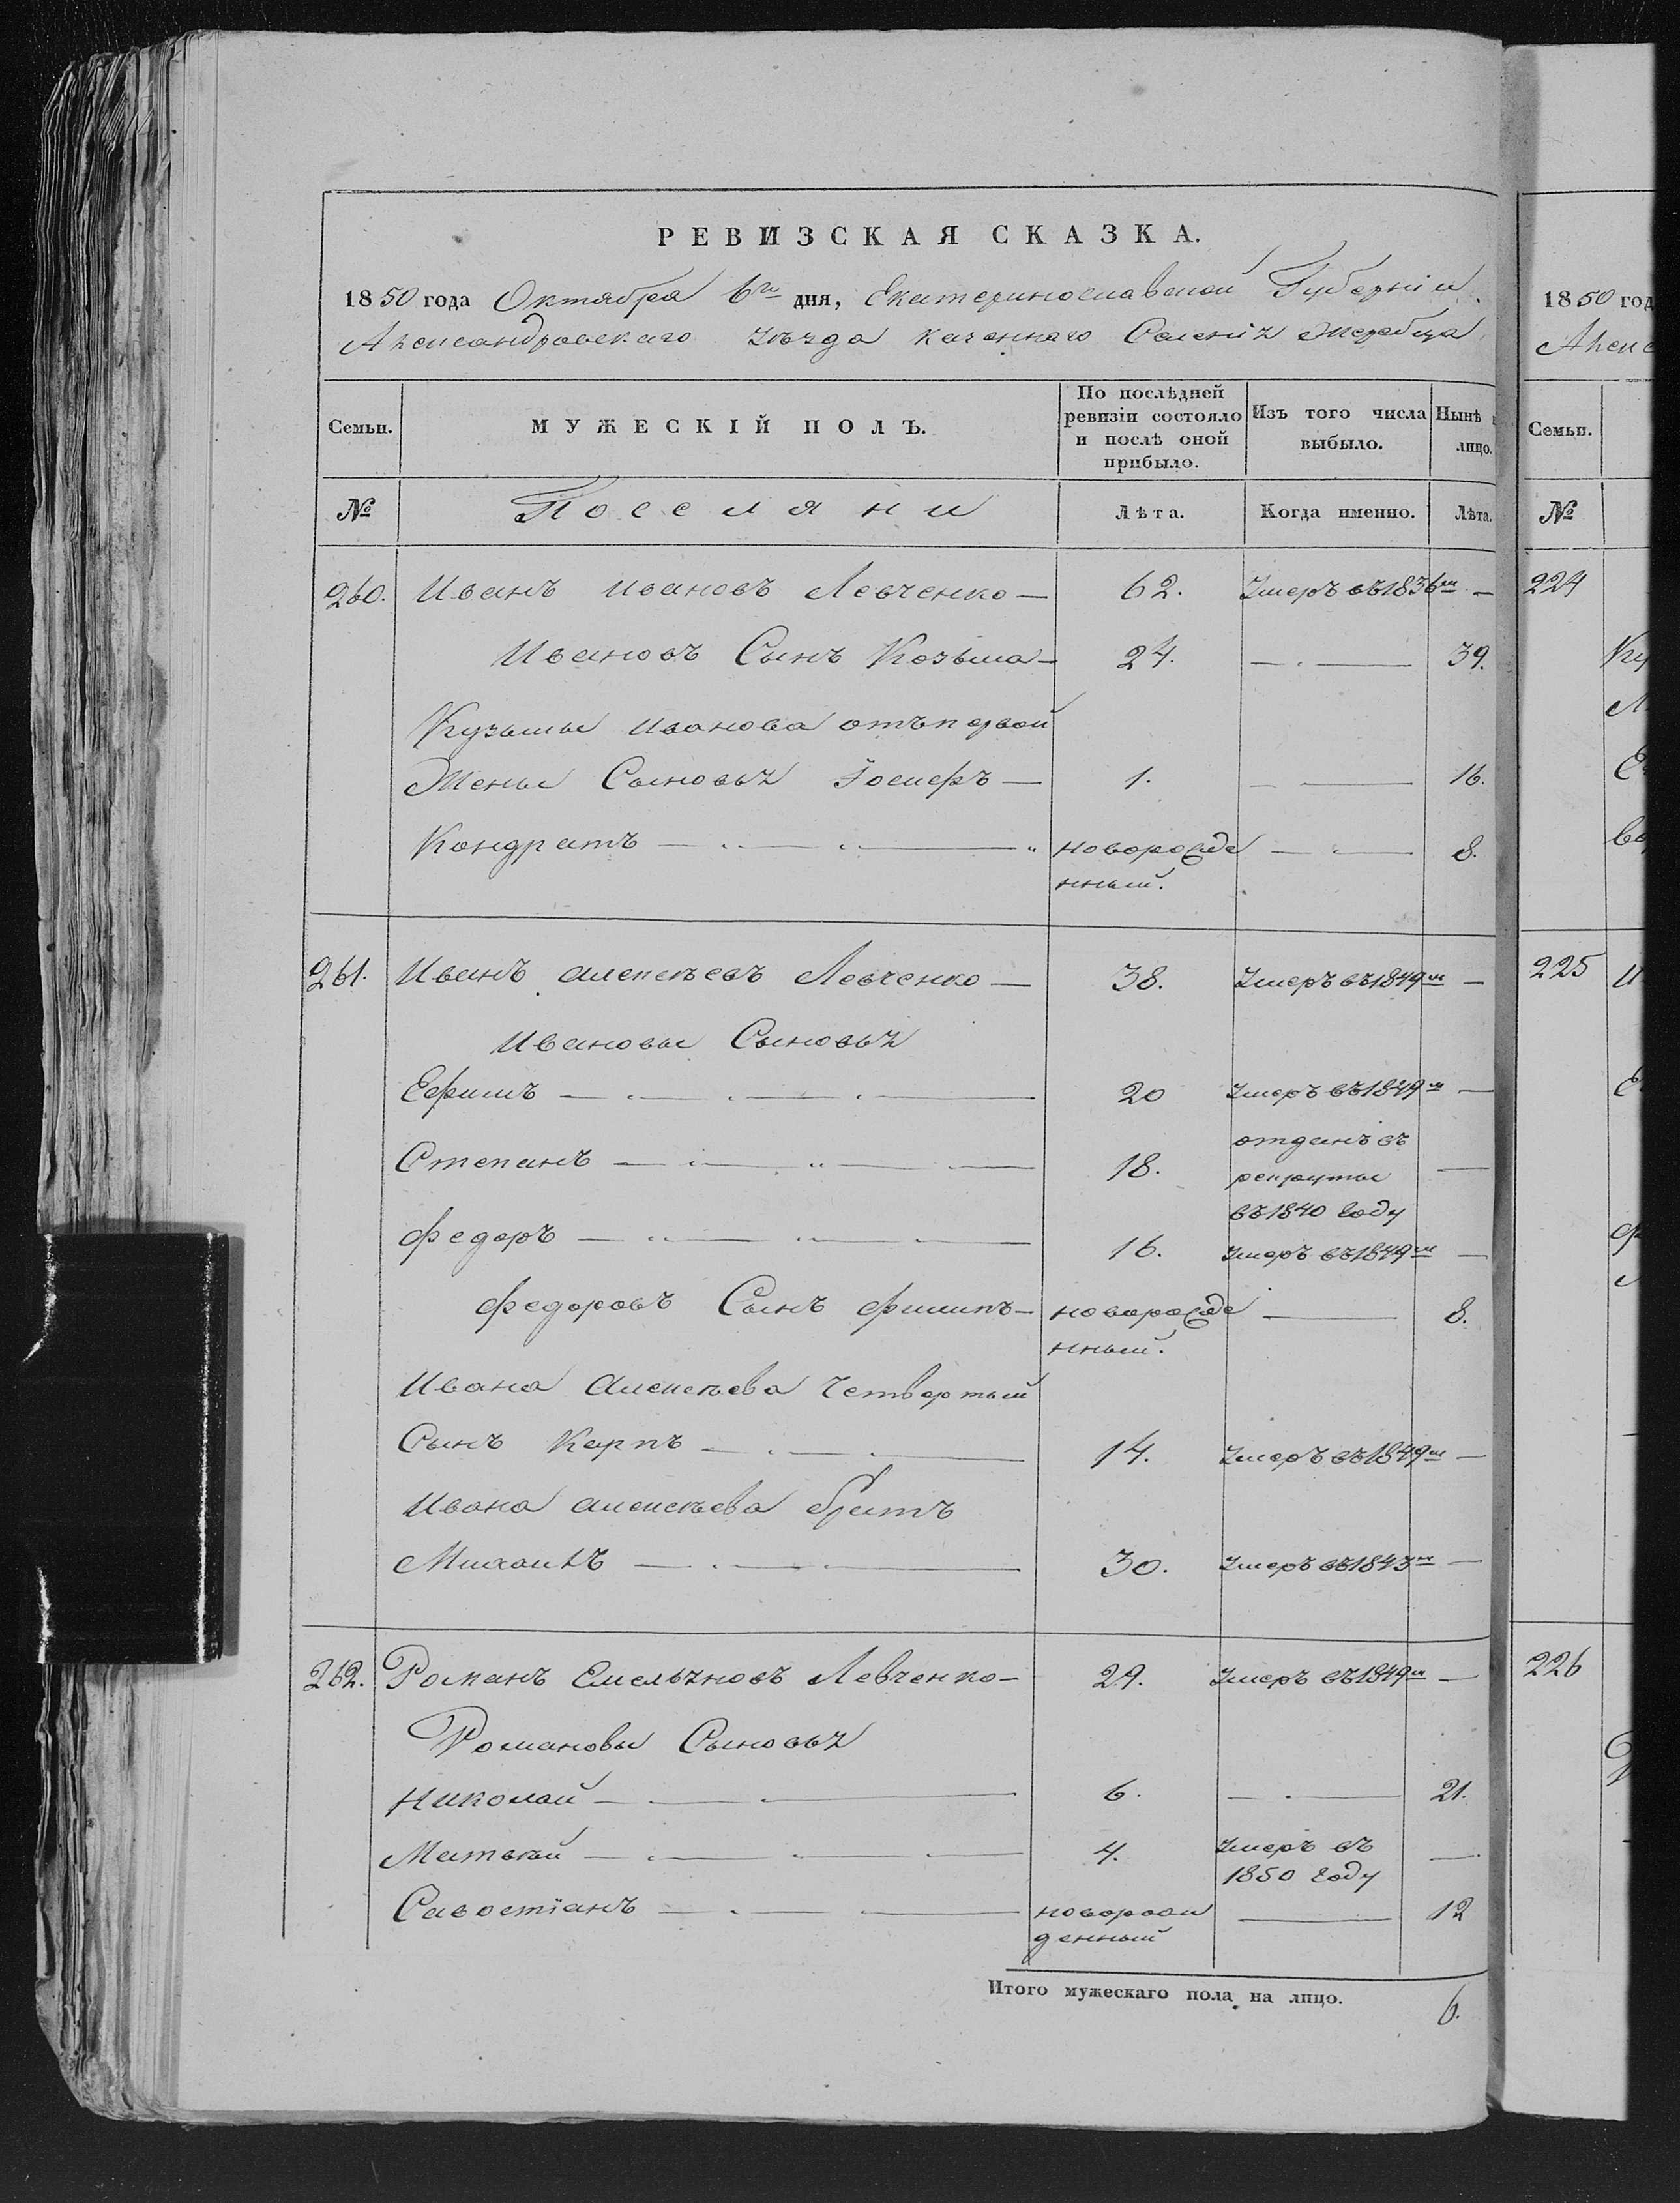 РЕВИЗСКАЯ СКАЗКА.
1850 года Октября 6го дня, Екатеринославской Губерніи
Александровскаго уѣзда казеннаго Селенія Жеребца
Семьи. МУЖЕСКІЙ ПОЛЪ. По послѣдней ревизіи состояло и послѣ оной прибыло. Изъ того числа выбыло. Нынѣ лицо.
№ Поселяни Лѣта. Когда именно. Лѣта.
260. Иванъ Ивановъ Левченко — 62. Умеръ въ 1836м —
Ивановъ Сынъ Козьма — 24. — 39.
Кузьмы Иванова отъ первой
Жены Сыновья Іосифъ — 1. — 16.
Кондратъ — новорожде — 8.
нный.
261. Иванъ Алексѣевъ Левченко — 38. Умеръ въ 1849м —
Ивановы Сыновья
Ефимъ — 20 Умеръ въ 1849м —
Степанъ — 18. отданъ въ
рекруты —
въ 1840 году
Федоръ — 16. Умеръ въ 1849м —
Федоровъ Сынъ Филипъ — новорожде — 8.
нный.
Ивана Алексѣева Четвертый
Сынъ Карпъ — 14. Умеръ въ 1849м —
Ивана Алексѣева братъ
Михаилъ — 30. Умеръ въ 1843м —
262. Романъ Емельяновъ Левченко — 29. Умеръ въ 1849м —
Романовы Сыновья
Николай — 6. — 21.
Матвѣй — 4. Умеръ въ —
1850 году
Савостіанъ — новорож — 12
денный
Итого мужескаго пола на лицо. 6.
1850 год
Алекс
Семьи.
№
224
225
226